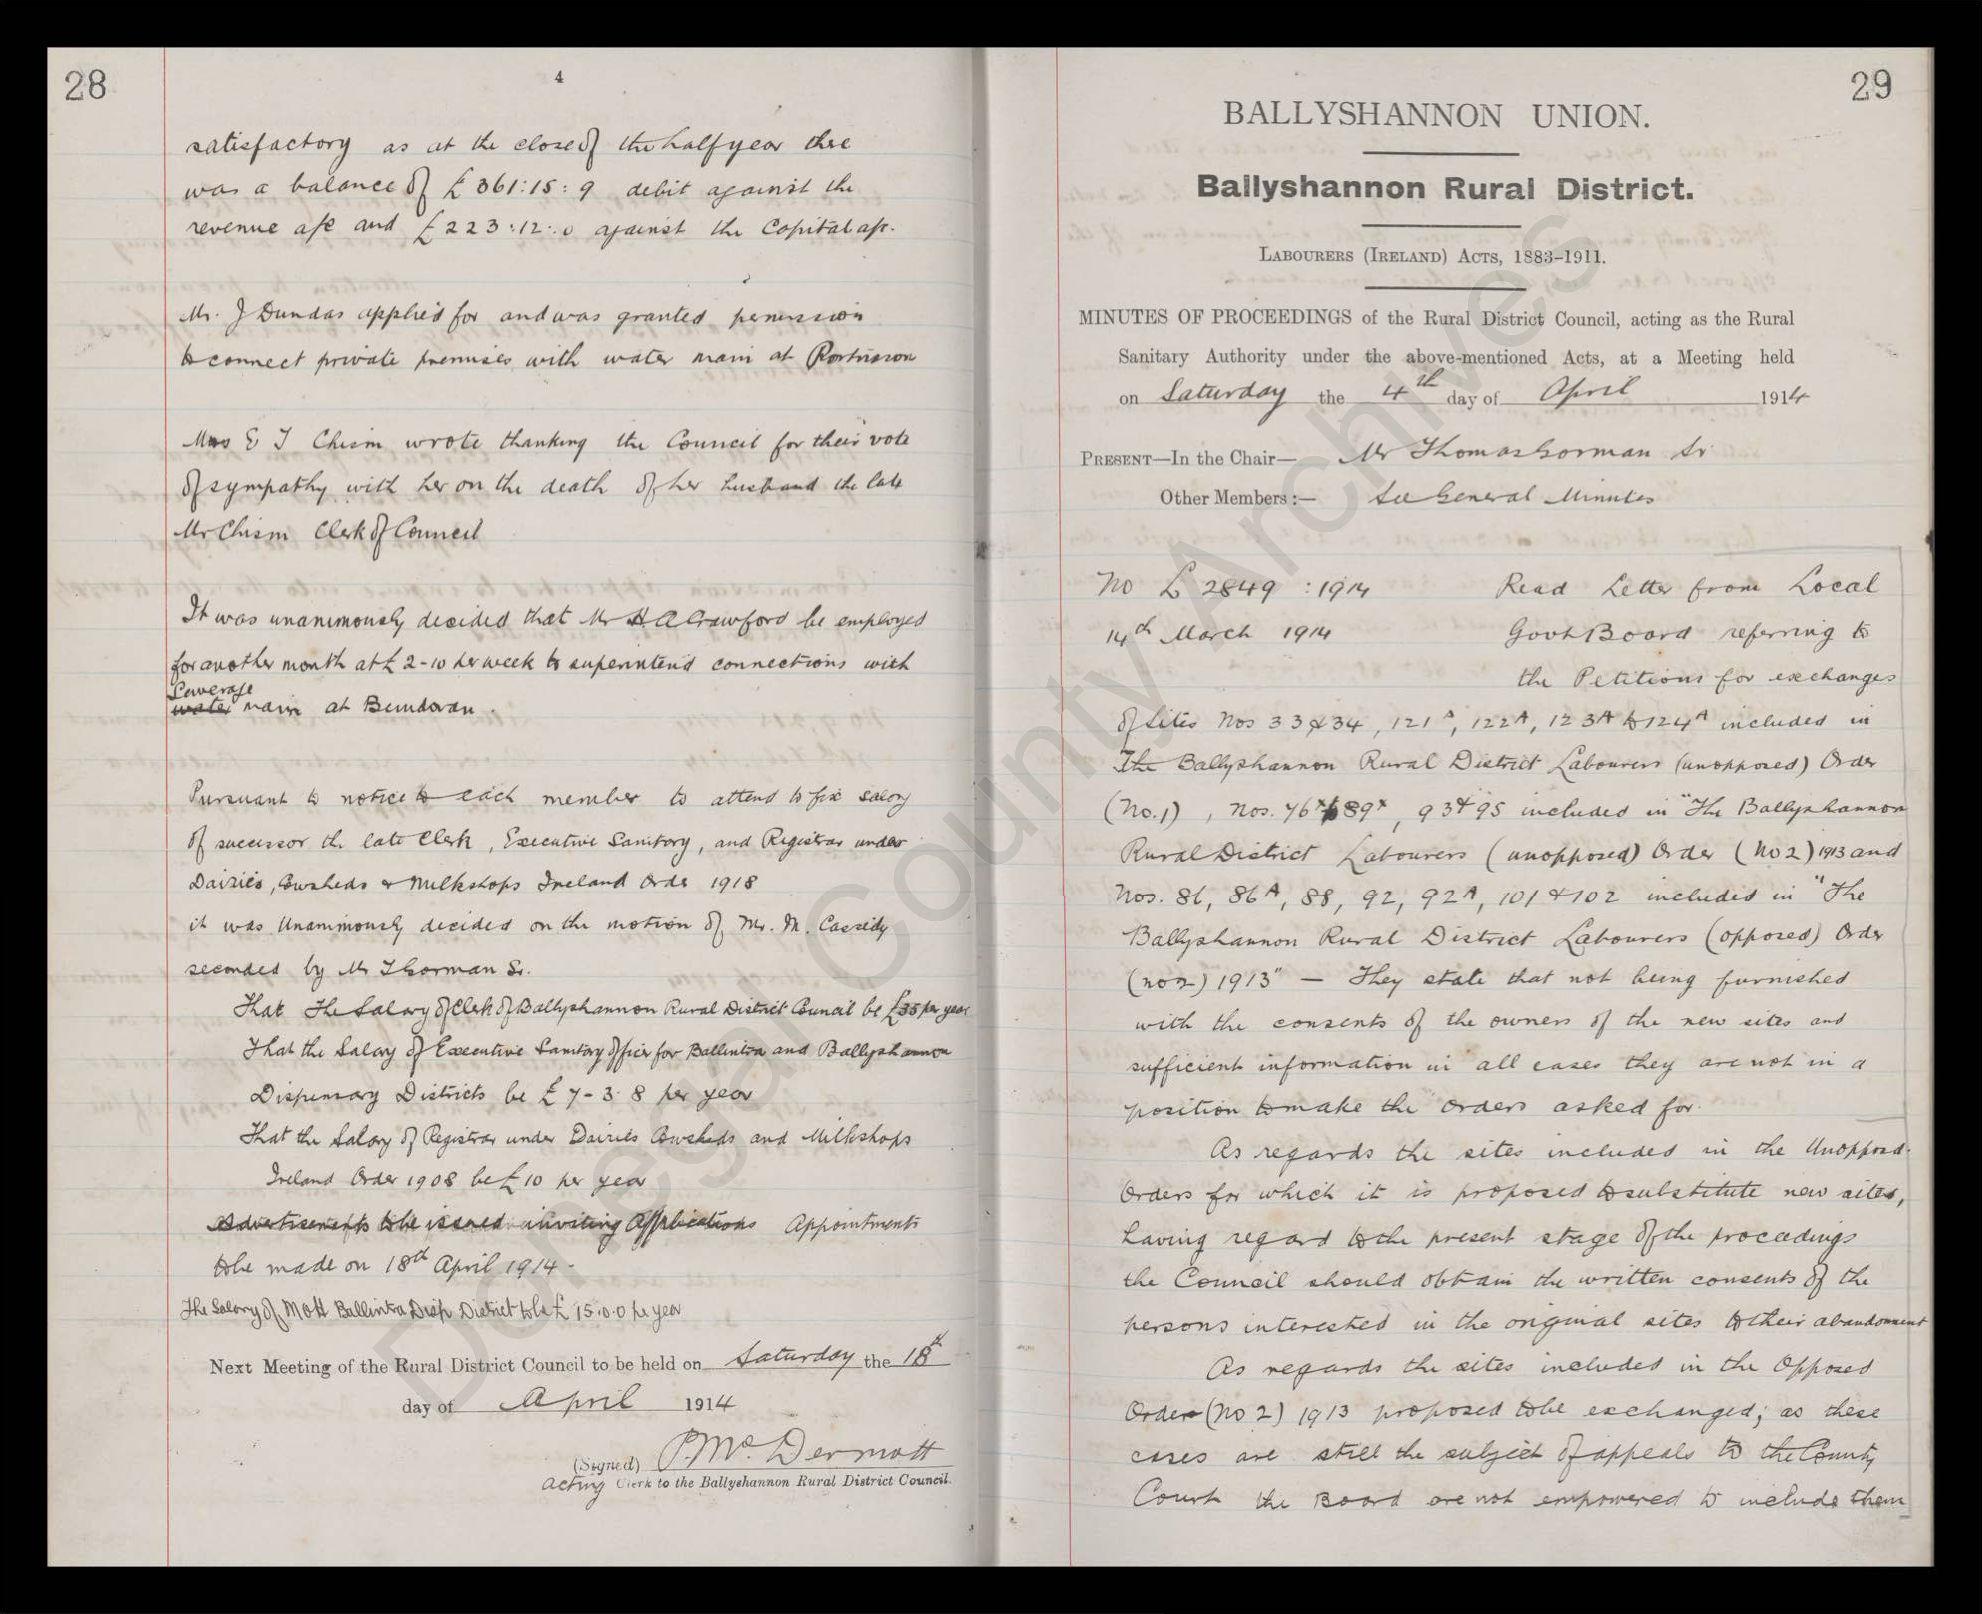 28
4
satisfactory as at the close of the half year there
was a balance of £361:15:9 debit against the
revenue a/c and £223:12:0 against the Capital a/c.
Mr. J Dundas applied for and was granted permission
to connect private premises with water main at Portnason
Mrs E J Chism wrote thanking the Council for their vote
of sympathy with her on the death of her husband the late
Mr Chism Clerk of Council
It was unanimously decided that Mr H A Crawford be employed
for another month at £2-10 per week to superintend connections with
Sewerage
water main at Bundoran.
Pursuant to notice to each member to attend to fix salary
of successor the late Clerk, Executive Sanitary, and Registrar under
Dairies, Cowsheds & Milkshops Ireland Order 1918
it was Unanimously decided on the motion of Mr. M. Cassidy
seconded by Mr T Gorman Sr.
That The Salary of Clerk of Ballyshannon Rural District Council be £35 per year
That the Salary of Executive Sanitary officer for Ballintra and Ballyshannon
Dispensary Districts be £7-3-8 per year
That the Salary of Registrar under Dairies Cowsheds and Milkshops
Ireland Order 1908 be £10 per year
Advertisements to be issued inviting Applications Appointments
to be made on 18th April 1914.
The Salary of MOH Ballintra Disp District to be £15.0.0 per year
Next Meeting of the Rural District Council to be held on Saturday the 18th
day of April 1914
(Signed) P. McDermott
Acting Clerk to the Ballyshannon Rural District Council.
29
BALLYSHANNON UNION.
Ballyshannon Rural District.
LABOURERS (IRELAND) ACTS, 1883-1911.
MINUTES OF PROCEEDINGS of the Rural District Council, acting as the Rural
Sanitary Authority under the above-mentioned Acts, at a Meeting held
on Saturday the 4th day of April 1914
PRESENT—In the Chair— Mr Thomas Gorman Sr
Other Members:— See General Minutes
No L 2849 : 1914 Read Letter from Local
14th March 1914 Govt Board referring to
the Petitions for exchanges
of sites Nos 33 & 34, 121A, 122A, 123A to 124A included in
The Ballyshannon Rural District Labourers (unopposed) Order
(No.1), Nos. 76x to 89x, 93 & 95 included in "The Ballyshannon
Rural District Labourers (unopposed) Order (No 2) 1913 and
Nos. 86, 86A, 88, 92, 92A, 101 & 102 included in "The
Ballyshannon Rural District Labourers (opposed) Order
(no 2) 1913" — They state that not being furnished
with the consents of the owners of the new sites and
sufficient information in all cases they are not in a
position to make the orders asked for.
As regards the sites included in the Unopposed
Orders for which it is proposed to substitute new sites,
having regard to the present stage of the proceedings
the Council should obtain the written consents of the
persons interested in the original sites to their abandonment
As regards the sites included in the Opposed
Order (No 2) 1913 proposed to be exchanged; as these
cases are still the subject of appeals to the County
Court the Board are not empowered to include them
Donegal County Archives